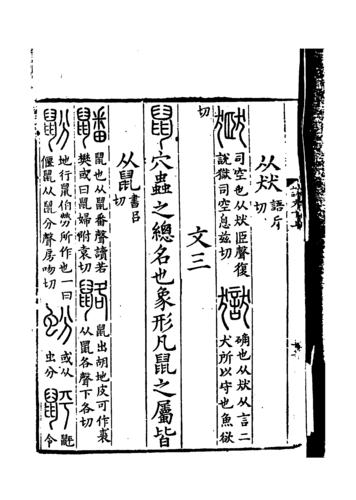 从㹜語斤切
𤟞司空也从㹜𦣞聲復說獄司空息兹切獄确也从㹜从言二犬所以守也魚欲
切
文三
鼠穴蟲之總名也象形凡鼠之屬皆
从鼠書呂切
鼠也从鼠番聲讀若樊或曰鼠婦附袁切鼠出胡地皮可作裘从鼠各聲下各切
鼢地行鼠伯勞所作也一曰偃鼠从鼠分聲房吻切蚡或从虫分䶄䶄令